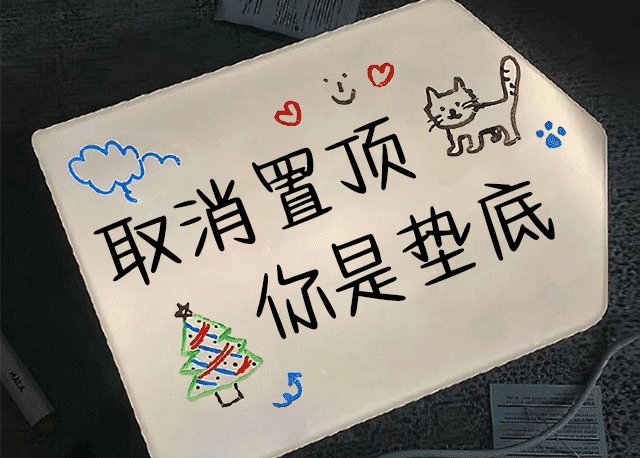 取消置顶
你是垫底
MALA